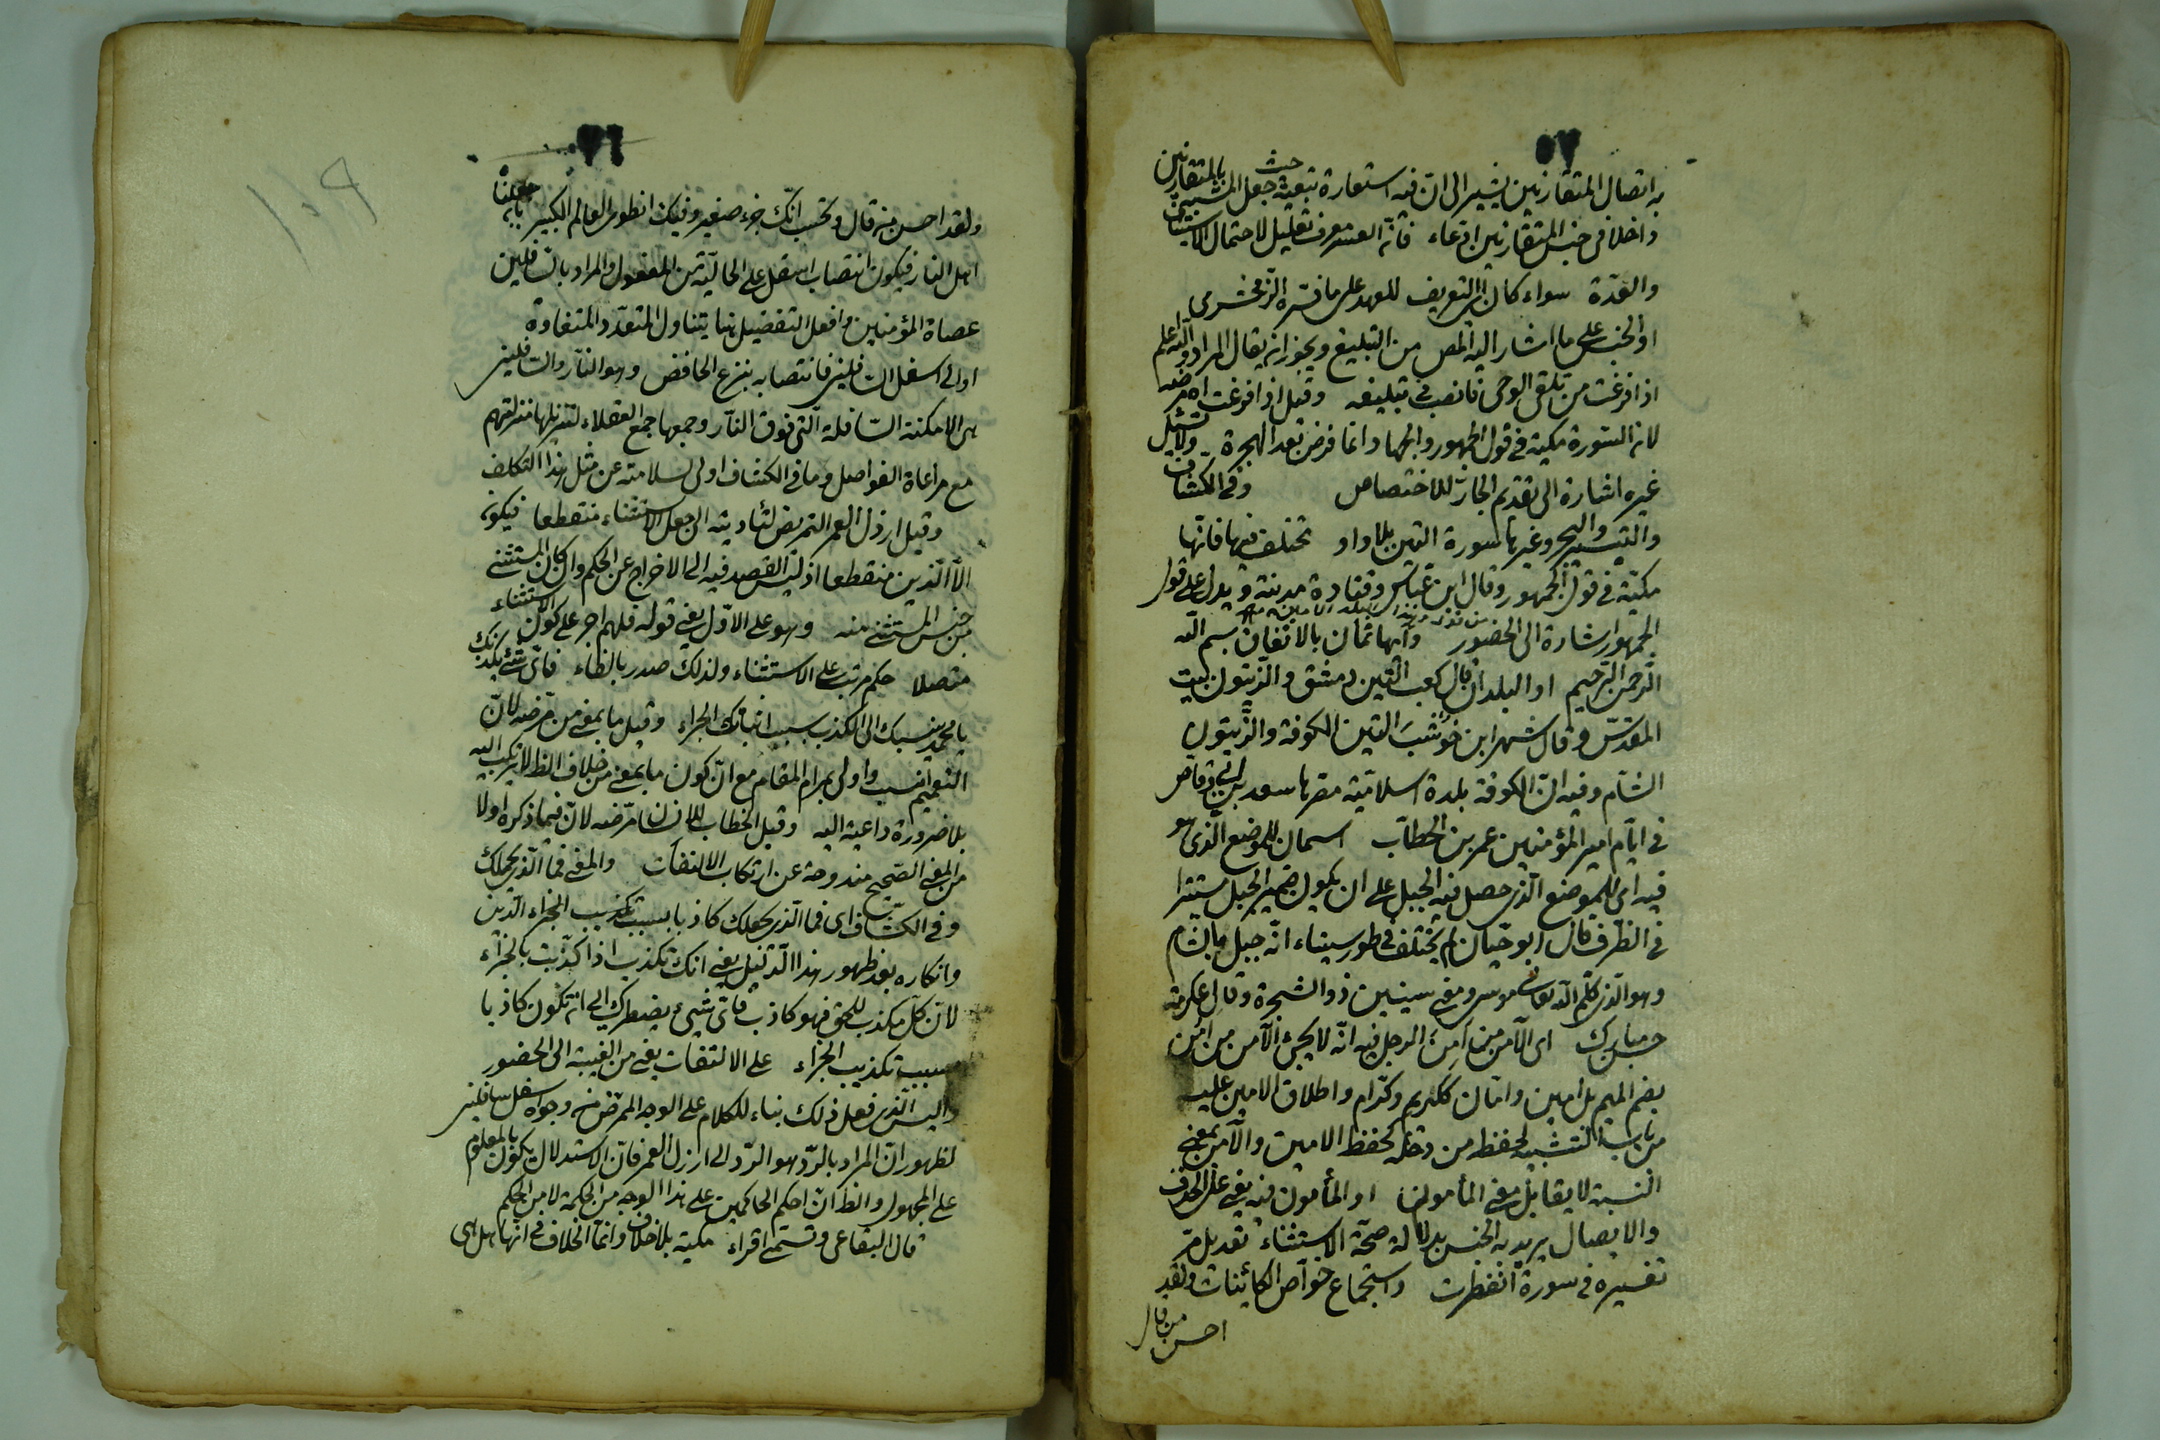 به اتصال المتقارنين يشير الى ان فيه استعارة تبعية حيث جعل المشبهين بالمتقارنين
داخلا فى جنس المتقارنين ادعاء فانه العسر معرف تعليل لاحتمال الاستيناف
والعدة سواء كان التعريف للعهد على ما فسره الزمخشرى
او الجنس على ما اشار اليه المص من التبليغ ويجوز ان يقال المراد والله اعلم
اذا فرغت من تلقى الوحى فانصب فى تبليغه وقيل اذا فرغت اه مرضه
لان السورة مكية فى قول الجمهور والجهاد انما فرض بعد الهجرة ولا تسئل
غيره اشارة الى تقديم الجار للاختصاص وفى الكشاف
والتيسير والبحر وغيرها سورة التين بلا واو مختلف فيها فانها
مكية فى قول الجمهور وقال ابن عباس وقتادة مدنية ويدل على قول
الجمهور اشارة الى الحضور وآيها ثمان بالاتفاق بسم الله
الرحمن الرحيم او البلدان قال كعب التين دمشق والزيتون بيت
المقدس وقال شهر ابن حوشب التين الكوفة والزيتون
الشام وفيه ان الكوفة بلدة اسلامية مصرها سعد بن ابى وقاص
فى ايام امير المؤمنين عمر بن الخطاب اسمان للموضع الذى هو
فيه اى للموضع الذى حصل فيه الجبل على ان يكون ضمير الجبل مستترا
فى الظرف قال ابو حيان لم يختلف فى طور سيناء انه جبل بالشام
وهو الذى كلم الله تعالى موسى ومعنى سينين ذو الشجرة وقال عكرمة
حسن مبارك اى الآمن من امن الرجل فيه انه لا يجئ الآمن من امن
بضم الميم بل امين وامان ككريم وكرام واطلاق الامين عليه
من باب التشبيه لحفظه من دخله كحفظ الامين والآمن بمعنى
النسبة لا يقابل معنى المأمون او المأمون فيه يعنى على الحذف
والايصال يريد به الجنس بدلالة صحة الاستثناء تعديل مر
تفسيره فى سورة انفطرت واستجماع خواص الكائنات ولقد
احسن من قال
ولقد احسن من قال وتحسب انك جزء صغير وفيك انطوى العالم الكبير بان جعلنا
اهل النار فيكون انتصاب اسفل على الحالية من المفعول والمراد بالسافلين
عصاة المؤمنين وافعل التفضيل مما يتناول المتعدد المتفاوت
او الى اسفل السافلين فانتصابه بنزع الخافض وهو النار والسافلين
هى الامكنة السافلة التى فوق النار وجمعها جمع العقلاء لتنزيلها منزلتهم
مع مراعاة الفواصل وما فى الكشاف اولى لسلامته عن مثل هذا التكلف
وقيل ارذل العمر التمريض لتاديته الى جعل الاستثناء منقطعا فيكون
الا الذين منقطعا اذ ليس القصد فيه الى الاخراج عن الحكم وان كان المستثنى
من جنس المستثنى منه وهو على الاول يعنى قوله فلهم اجر على كون الاستثناء
متصلا حكم مرتب على الاستثناء ولذلك صدر بالفاء فاى شئ يكذبك
يا محمد ينسبك الى الكذب بسبب اثباتك الجزاء وقيل ما بمعنى من مرضه لان
التعميم انسب واولى بمرام المقام مع ان كون ما بمعنى من خلاف الظ لا يرتكب اليه
بلا ضرورة داعية اليه وقيل الخطاب للانسان مرضه لان فيما ذكره اولا
من المعنى الصحيح مندوحة عن ارتكاب الالتفات والمعنى فما الذى يحملك
وفى الكشاف اى فما الذى يجعلك كاذبا بسبب تكذيب الجزاء الدين
وانكاره بعد ظهور هذا الدليل يعنى انك تكذب اذا كذبت بالجزاء
لان كل مكذب للحق فهو كاذب فاى شئ يضطرك الى ان تكون كاذبا
بسبب تكذيب الجزاء على الالتفات يعنى من الغيبة الى الحضور
اليس الذى فعل ذلك بناء للكلام على الوجه الممرض من وجوه اسفل سافلين
لظهور ان المراد بالرد هو الرد الى ارذل العمر فان الاستدلال يكون بالمعلوم
على المجهول والظ ان احكم الحاكمين على هذا الوجه من الحكمة لا من الحكم
قال البقاعى وتسمى اقراء مكية بلا خلاف وانما الخلاف فى انها هل هى